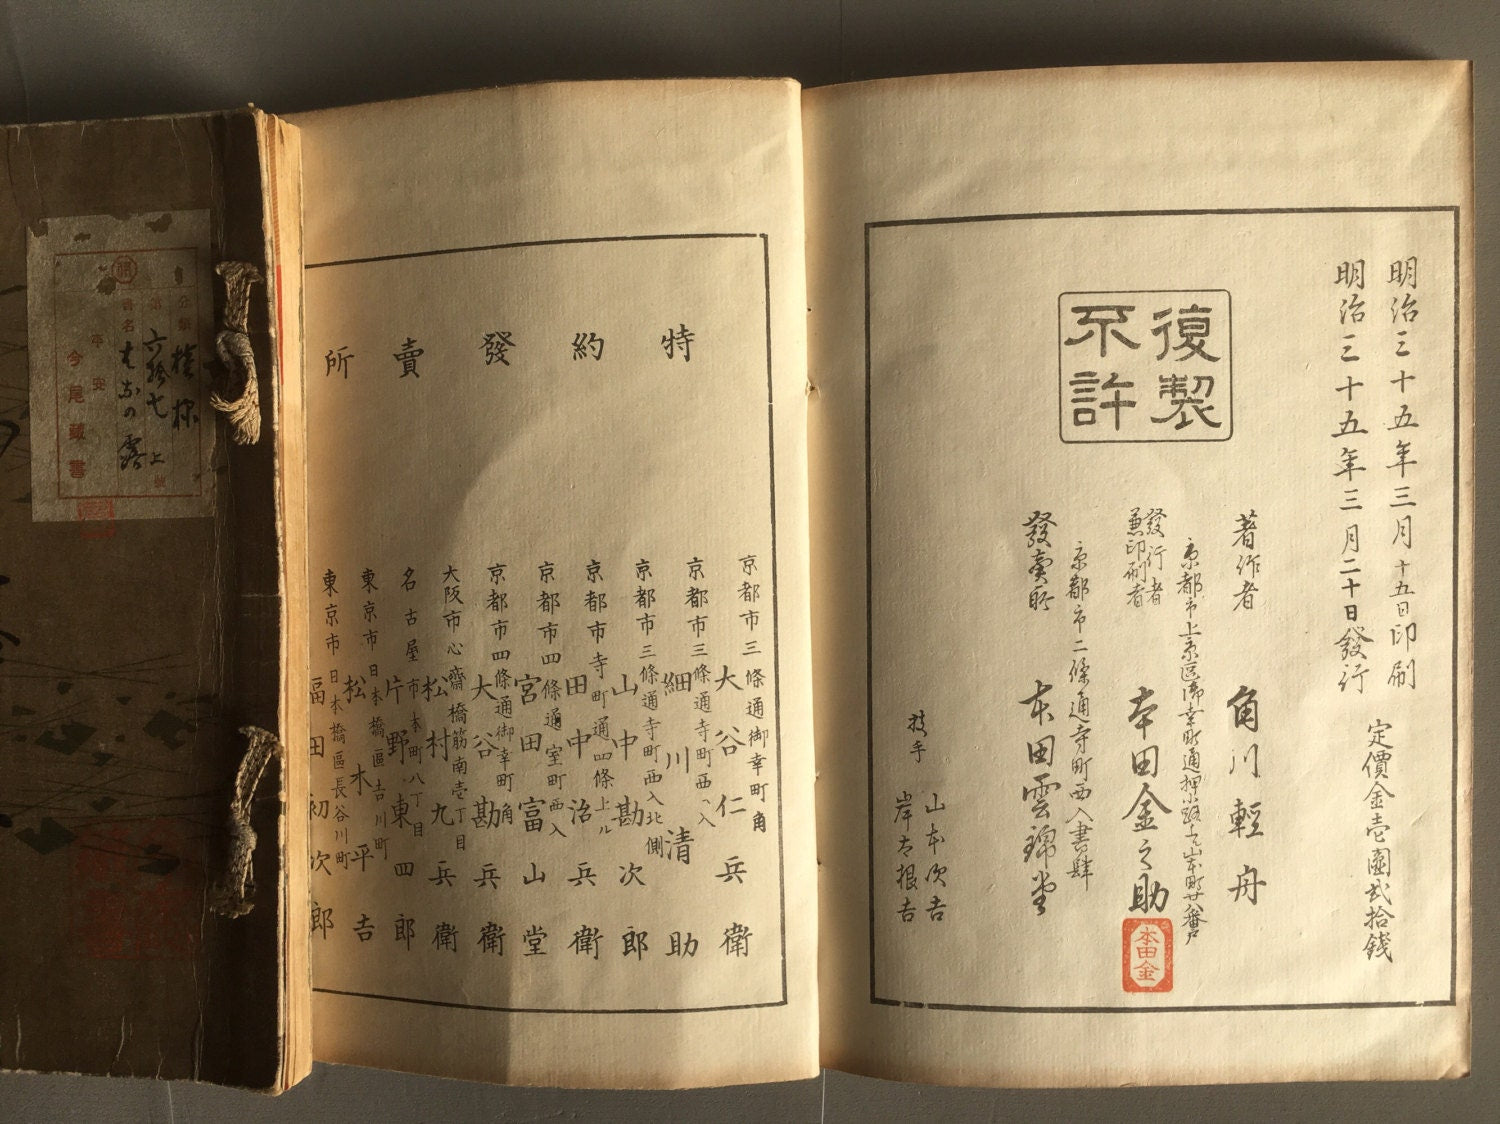 明治三十五年三月十五日印刷
明治三十五年三月二十日發行
定價金壱圓貮拾錢
復製
不許
著作者 角川輕舟
京都市上京區御幸町通押小路上ル山本町廿八番戸
發行者
兼印刷者
本田金之助
本田金
京都市二條通寺町西入書肆
發賣所 本田雲錦堂
技手 山本次吉
岸本根吉
特約發賣所
京都市三條通御幸町角
大谷仁兵衛
京都市三條通寺町西ヘ入
細川清助
京都市三條通寺町西入北側
山中勘次郎
京都市寺町通四條上ル
田中治兵衛
京都市四條通室町西入
宮田富山堂
京都市四條通御幸町角
大谷勘兵衛
大阪市心齋橋筋南壱丁目
松村九兵衛
名古屋市本町八丁目
片野東四郎
東京市日本橋區吉川町
松木平吉
東京市日本橋區長谷川町
福田初次郎
第六拾七上號
書名
今尾藏書